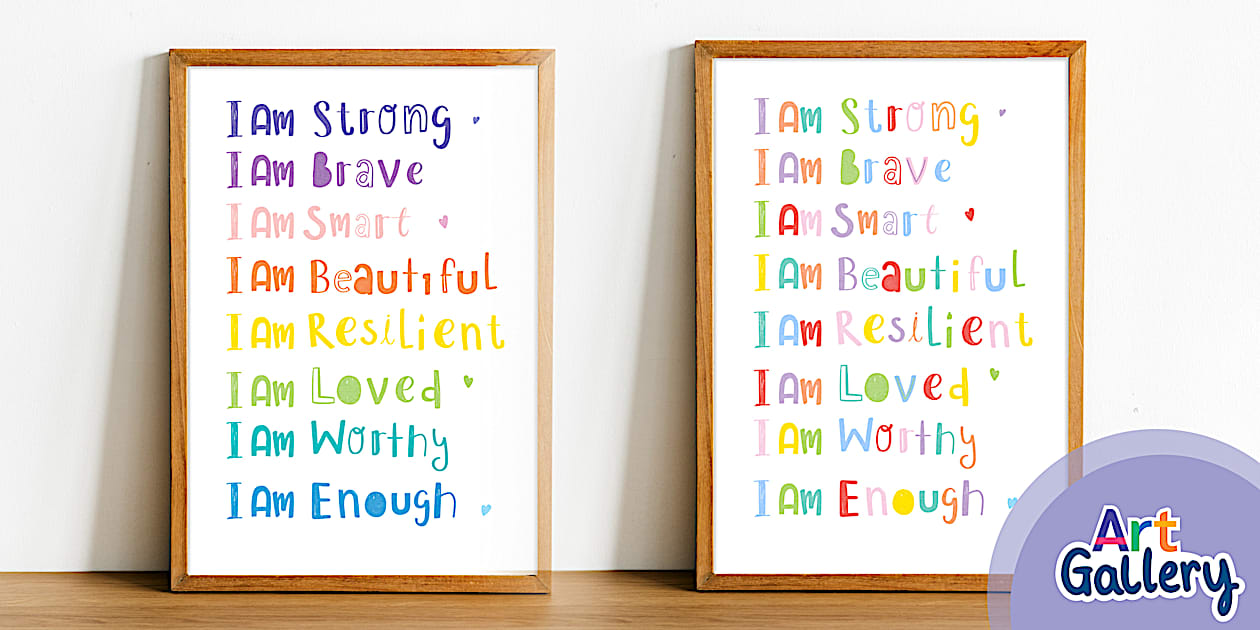 I Am Strong
I Am Brave
I Am Smart
I Am Beautiful
I Am Resilient
I Am Loved
I Am Worthy
I Am Enough
I Am Strong
I Am Brave
I Am Smart
I Am Beautiful
I Am Resilient
I Am Loved
I Am Worthy
I Am Enough
Art
Gallery